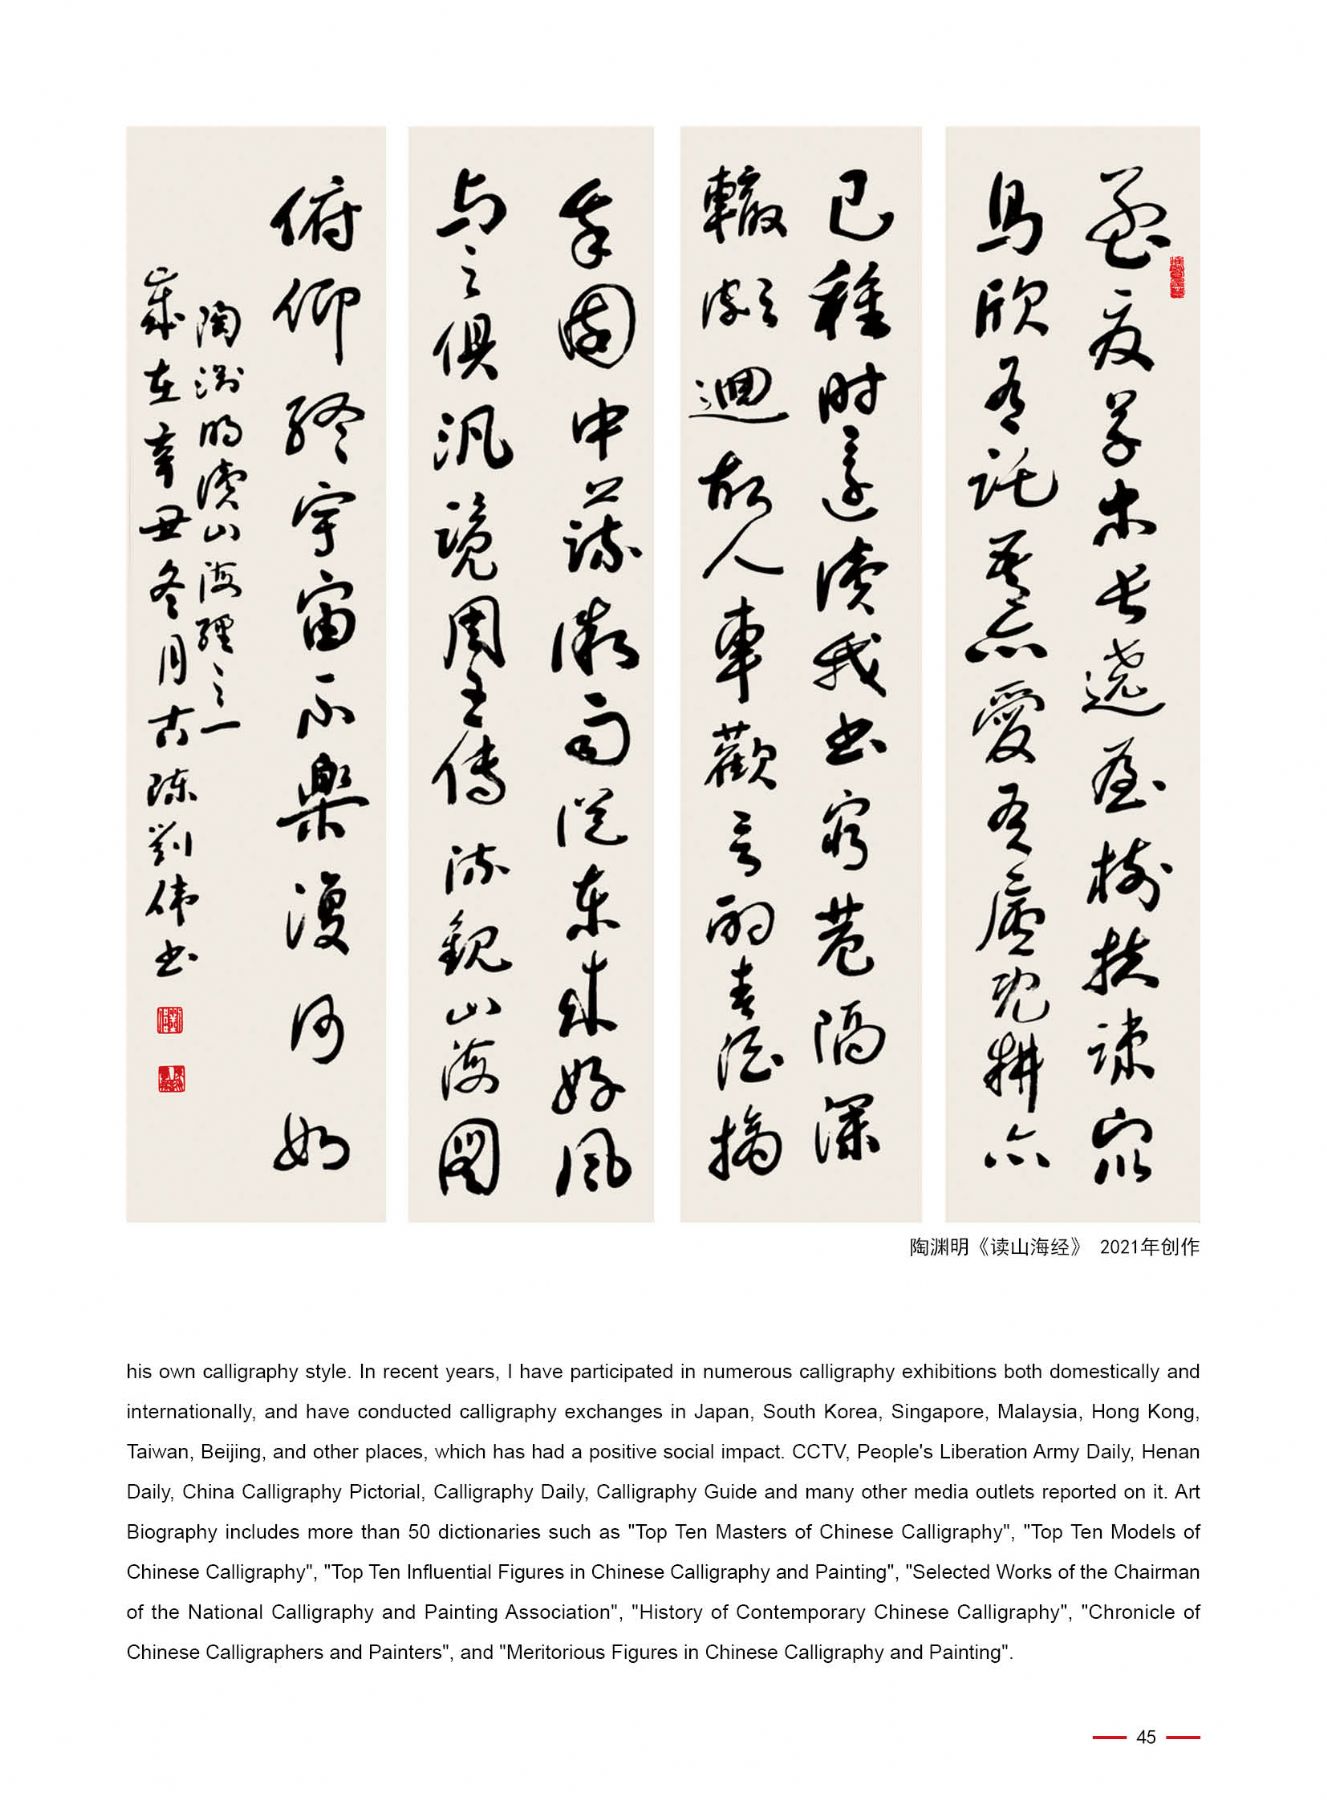 孟夏草木長遶屋樹扶疎眾
鳥欣有託吾亦愛吾廬既耕亦
已種时還讀我书窮巷隔深
轍頗迴故人車歡言酌春酒摘
我園中蔬微雨從東來好風
与之俱汎覽周王傳流觀山海圖
俯仰終宇宙不樂復何如
陶渊明读山海經之一
歲在辛丑冬月古陈劉伟书
陶渊明《读山海经》 2021年创作
his own calligraphy style. In recent years, I have participated in numerous calligraphy exhibitions both domestically and
internationally, and have conducted calligraphy exchanges in Japan, South Korea, Singapore, Malaysia, Hong Kong,
Taiwan, Beijing, and other places, which has had a positive social impact. CCTV, People's Liberation Army Daily, Henan
Daily, China Calligraphy Pictorial, Calligraphy Daily, Calligraphy Guide and many other media outlets reported on it. Art
Biography includes more than 50 dictionaries such as "Top Ten Masters of Chinese Calligraphy", "Top Ten Models of
Chinese Calligraphy", "Top Ten Influential Figures in Chinese Calligraphy and Painting", "Selected Works of the Chairman
of the National Calligraphy and Painting Association", "History of Contemporary Chinese Calligraphy", "Chronicle of
Chinese Calligraphers and Painters", and "Meritorious Figures in Chinese Calligraphy and Painting".
45